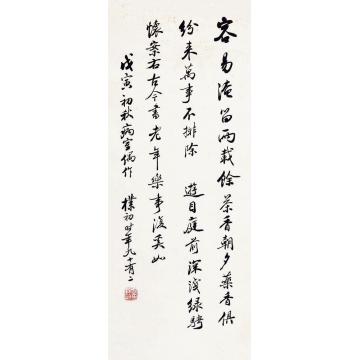 容易淹留两载余茶香朝夕药香俱
纷来万事不排除　遊目庭前深浅绿骋
怀案右古今书老年乐事復奚如
戊寅初秋病室偶作　樸初时年九十有二